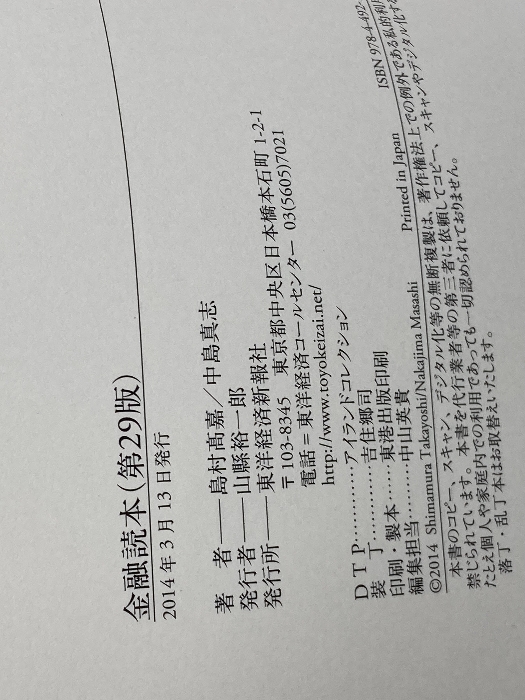 金融読本(第29版)
2014年3月13日発行
著　者――島村髙嘉／中島真志
発行者――山縣裕一郎
発行所――東洋経済新報社
〒103-8345　東京都中央区日本橋本石町1-2-1
電話＝東洋経済コールセンター　03(5605)7021
http://www.toyokeizai.net/
ＤＴＰ…………アイランドコレクション
装　丁…………吉住郷司
印刷・製本……東港出版印刷
編集担当………中山英貴
©2014　Shimamura Takayoshi/Nakajima Masashi　　Printed in Japan　　ISBN 978-4-492-
本書のコピー、スキャン、デジタル化等の無断複製は、著作権法上での例外である私的利用
禁じられています。本書を代行業者等の第三者に依頼してコピー、スキャンやデジタル化する
たとえ個人や家庭内での利用であっても一切認められておりません。
落丁・乱丁本はお取替えいたします。